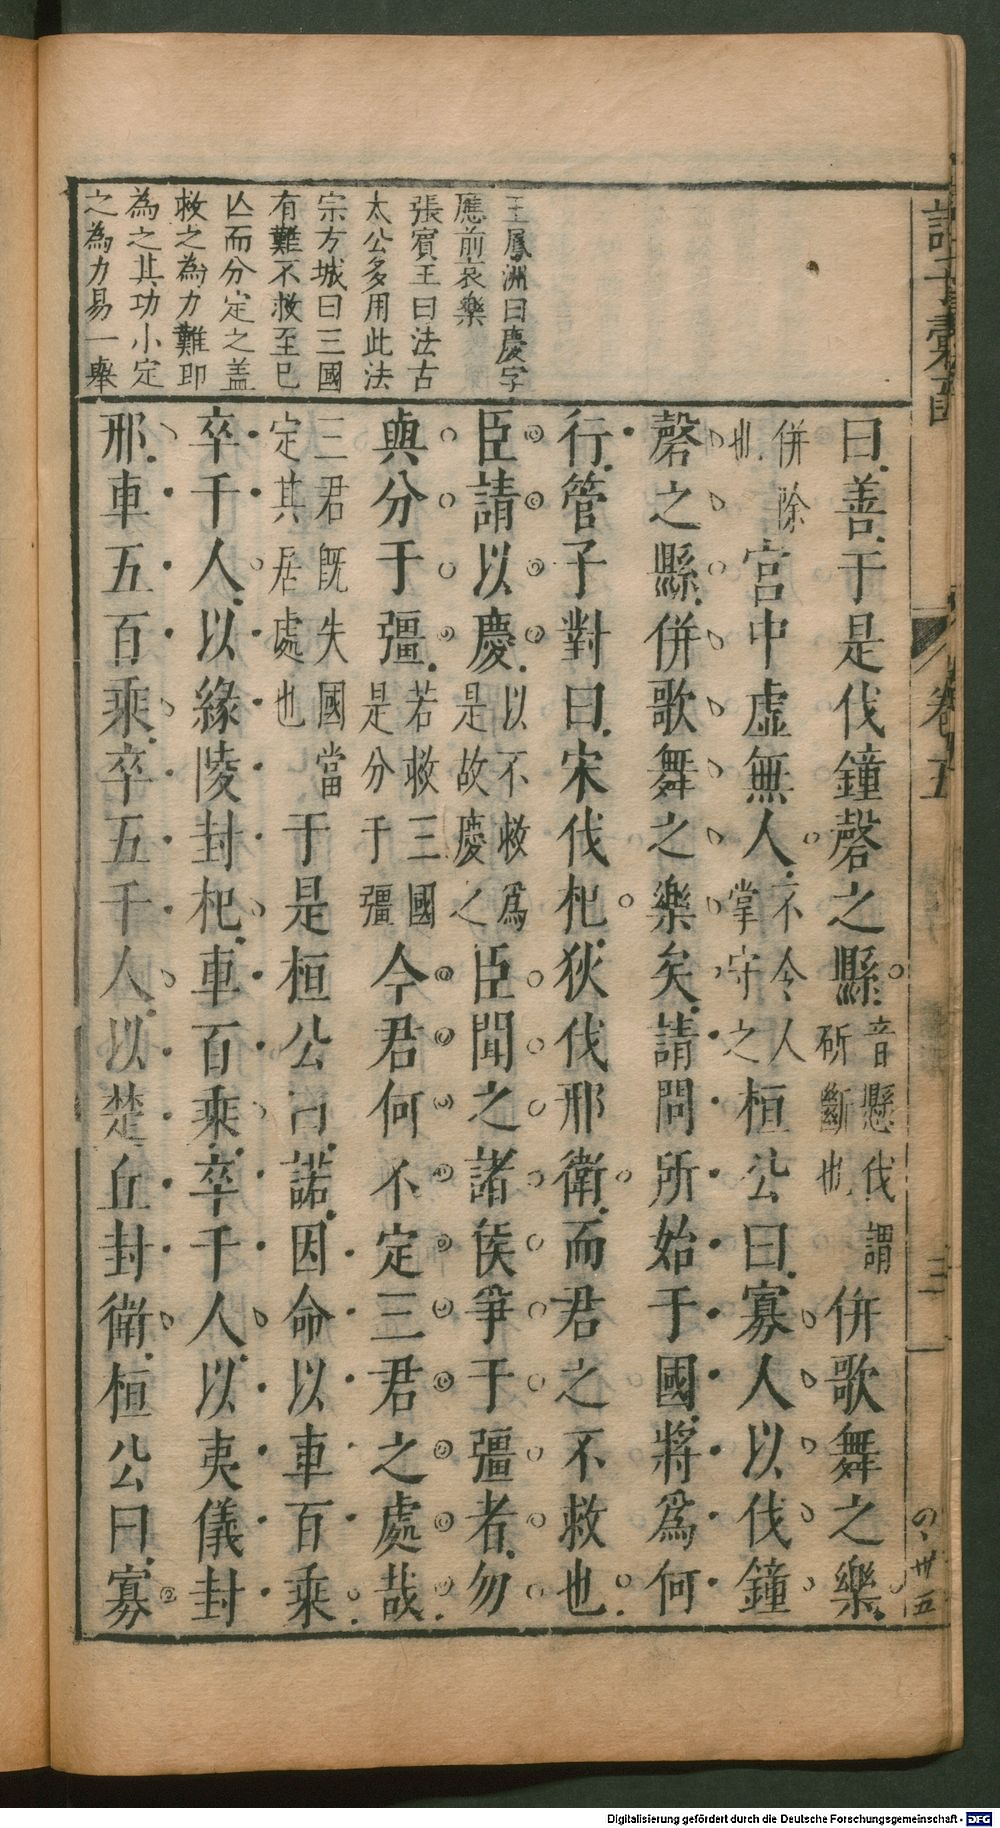 王鳳洲曰慶字
應前哀樂
張賓王曰法古
太公多用此法
宗方城曰三國
有難不救至已
亾而分定之盖
救之為力難即
為之其功小定
之為力易一舉
曰善于是伐鐘磬之縣音懸伐謂斫斷也併歌舞之樂
併除也宮中虛無人不令人掌守之桓公曰寡人以伐鐘
磬之縣併歌舞之樂矣請問所始于國將爲何
行管子對曰宋伐杞狄伐邢衛而君之不救也
臣請以慶以不救爲是故慶之臣聞之諸侯爭于彊者勿
與分于彊若救三國是分于彊今君何不定三君之處哉
三君既失國當定其居處也于是桓公曰諾因命以車百乘
卒千人以緣陵封杞車百乘卒千人以夷儀封
邢車五百乘卒五千人以楚丘封衛桓公曰寡
卷五
三
の、卅五
Digitalisierung gefördert durch die Deutsche Forschungsgemeinschaft - DFG